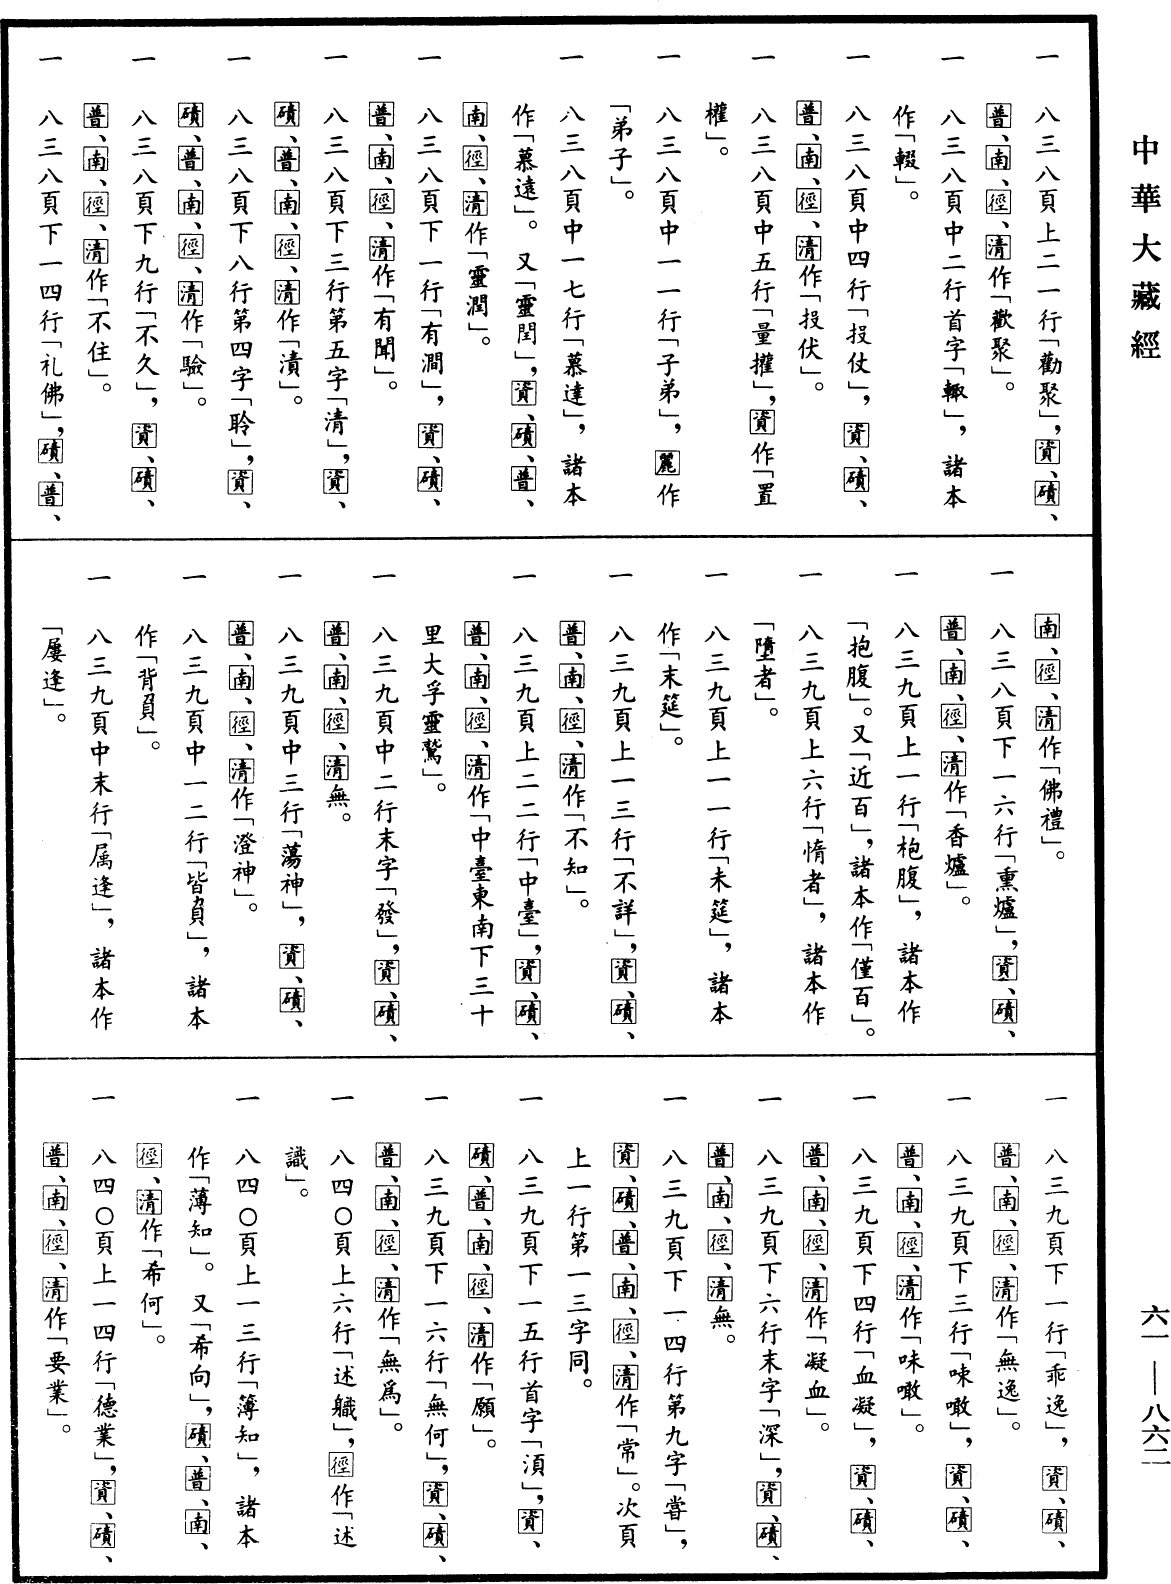 中華大藏經
一　八三八頁上二一行「勸聚」，資、磧、
普、南、徑、清作「歡聚」。
一　八三八頁中二行首字「輙」，諸本
作「輟」。
一　八三八頁中四行「投仗」，資、磧、
普、南、徑、清作「投伏」。
一　八三八頁中五行「量擢」，資作「置
權」。
一　八三八頁中一一行「子弟」，麗作
「弟子」。
一　八三八頁中一七行「慕達」，諸本
作「慕遠」。又「靈閏」，資、磧、普、
南、徑、清作「靈潤」。
一　八三八頁下一行「有澗」，資、磧、
普、南、徑、清作「有聞」。
一　八三八頁下三行第五字「清」，資、
磧、普、南、徑、清作「漬」。
一　八三八頁下八行第四字「聆」，資、
磧、普、南、徑、清作「驗」。
一　八三八頁下九行「不久」，資、磧、
普、南、徑、清作「不住」。
一　八三八頁下一四行「礼佛」，磧、普、
南、徑、清作「佛禮」。
一　八三八頁下一六行「熏爐」，資、磧、
普、南、徑、清作「香爐」。
一　八三九頁上一行「枹腹」，諸本作
「抱腹」。又「近百」，諸本作「僅百」。
一　八三九頁上六行「惰者」，諸本作
「墮者」。
一　八三九頁上一一行「未筵」，諸本
作「末筵」。
一　八三九頁上一三行「不詳」，資、磧、
普、南、徑、清作「不知」。
一　八三九頁上二二行「中臺」，資、磧、
普、南、徑、清作「中臺東南下三十
里大孚靈鷲」。
一　八三九頁中二行末字「發」，資、磧、
普、南、徑、清無。
一　八三九頁中三行「蕩神」，資、磧、
普、南、徑、清作「澄神」。
一　八三九頁中一二行「皆負」，諸本
作「背負」。
一　八三九頁中末行「属逢」，諸本作
「屢逢」。
一　八三九頁下一行「乖逸」，資、磧、
普、南、徑、清作「無逸」。
一　八三九頁下三行「唻噉」，資、磧、
普、南、徑、清作「味噉」。
一　八三九頁下四行「血凝」，資、磧、
普、南、徑、清作「凝血」。
一　八三九頁下六行末字「深」，資、磧、
普、南、徑、清無。
一　八三九頁下一四行第九字「甞」，
資、磧、普、南、徑、清作「常」。次頁
上一行第一三字同。
一　八三九頁下一五行首字「湏」，資、
磧、普、南、徑、清作「願」。
一　八三九頁下一六行「無何」，資、磧、
普、南、徑、清作「無爲」。
一　八四〇頁上六行「述軄」，徑作「述
識」。
一　八四〇頁上一三行「簿知」，諸本
作「薄知」。又「希向」，磧、普、南、
徑、清作「希何」。
一　八四〇頁上一四行「德業」，資、磧、
普、南、徑、清作「要業」。
六一——八六二